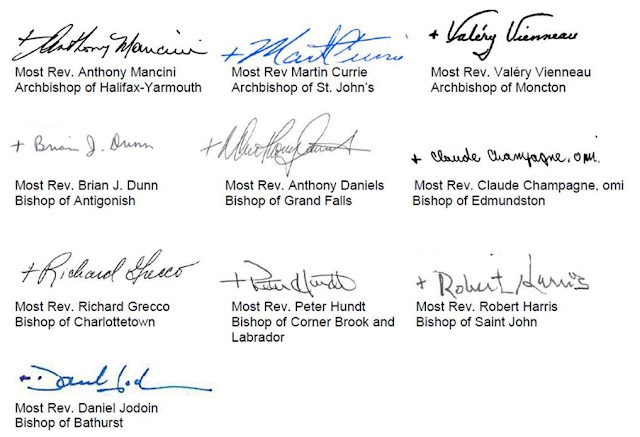 + Anthony Mancini
Most Rev. Anthony Mancini
Archbishop of Halifax-Yarmouth
+ Martin Currie
Most Rev Martin Currie
Archbishop of St. John's
+ Valéry Vienneau
Most Rev. Valéry Vienneau
Archbishop of Moncton
+ Brian J. Dunn
Most Rev. Brian J. Dunn
Bishop of Antigonish
+ Anthony Daniels
Most Rev. Anthony Daniels
Bishop of Grand Falls
+ Claude Champagne, omi.
Most Rev. Claude Champagne, omi
Bishop of Edmundston
+ Richard Grecco
Most Rev. Richard Grecco
Bishop of Charlottetown
+ Peter Hundt
Most Rev. Peter Hundt
Bishop of Corner Brook and
Labrador
+ Robert Harris
Most Rev. Robert Harris
Bishop of Saint John
+ Daniel Jodoin
Most Rev. Daniel Jodoin
Bishop of Bathurst